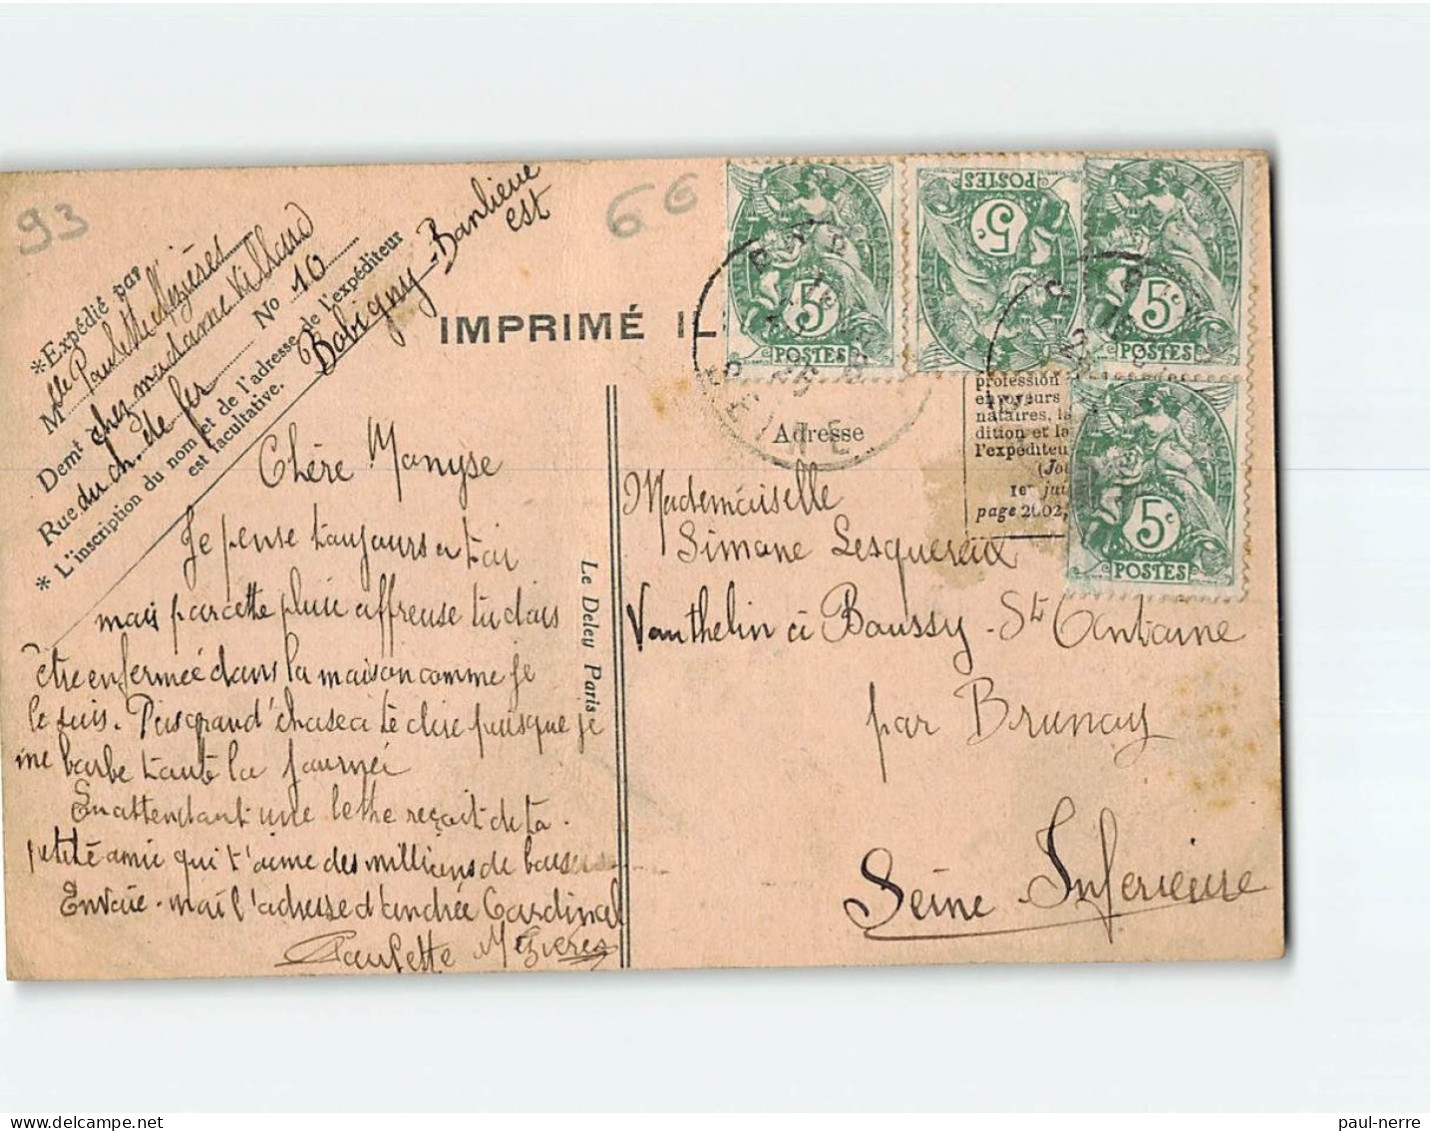 93
66
*Expédié par
Mlle Paulette Mézières
Demt chez madame Villard
Rue du ch. de fer No 10
* L'inscription du nom et de l'adresse de l'expéditeur
est facultative.
Bobigny - Banlieue
est
IMPRIMÉ IL
FRANÇAISE
5c
POSTES
FRANÇAISE
5c
POSTES
FRANÇAISE
5c
POSTES
FRANÇAISE
5c
POSTES
PARIS
SEINE
profession
envoyeurs
nataires, la
dition et la
l'expéditeur
(Jou
1er jui
page 2602,
Adresse
Chère Monyse
Je pense toujours a toi
mais par cette pluie affreuse tu dois
être enfermée dans la maison comme je
le suis. Pas grand'chose a te dire puisque je
me barbe toute la journée
En attendant une lettre reçoit de ta
petite amie qui t'aime des millions de baisers
Envoie-moi l'adresse d'andrée Cardinal
Paulette Mézières
Le Deley Paris
Mademoiselle
Simone Lesquereux
Vanthelin à Boussy-St Antoine
par Brunoy
Seine Inferieure
paul-nerre